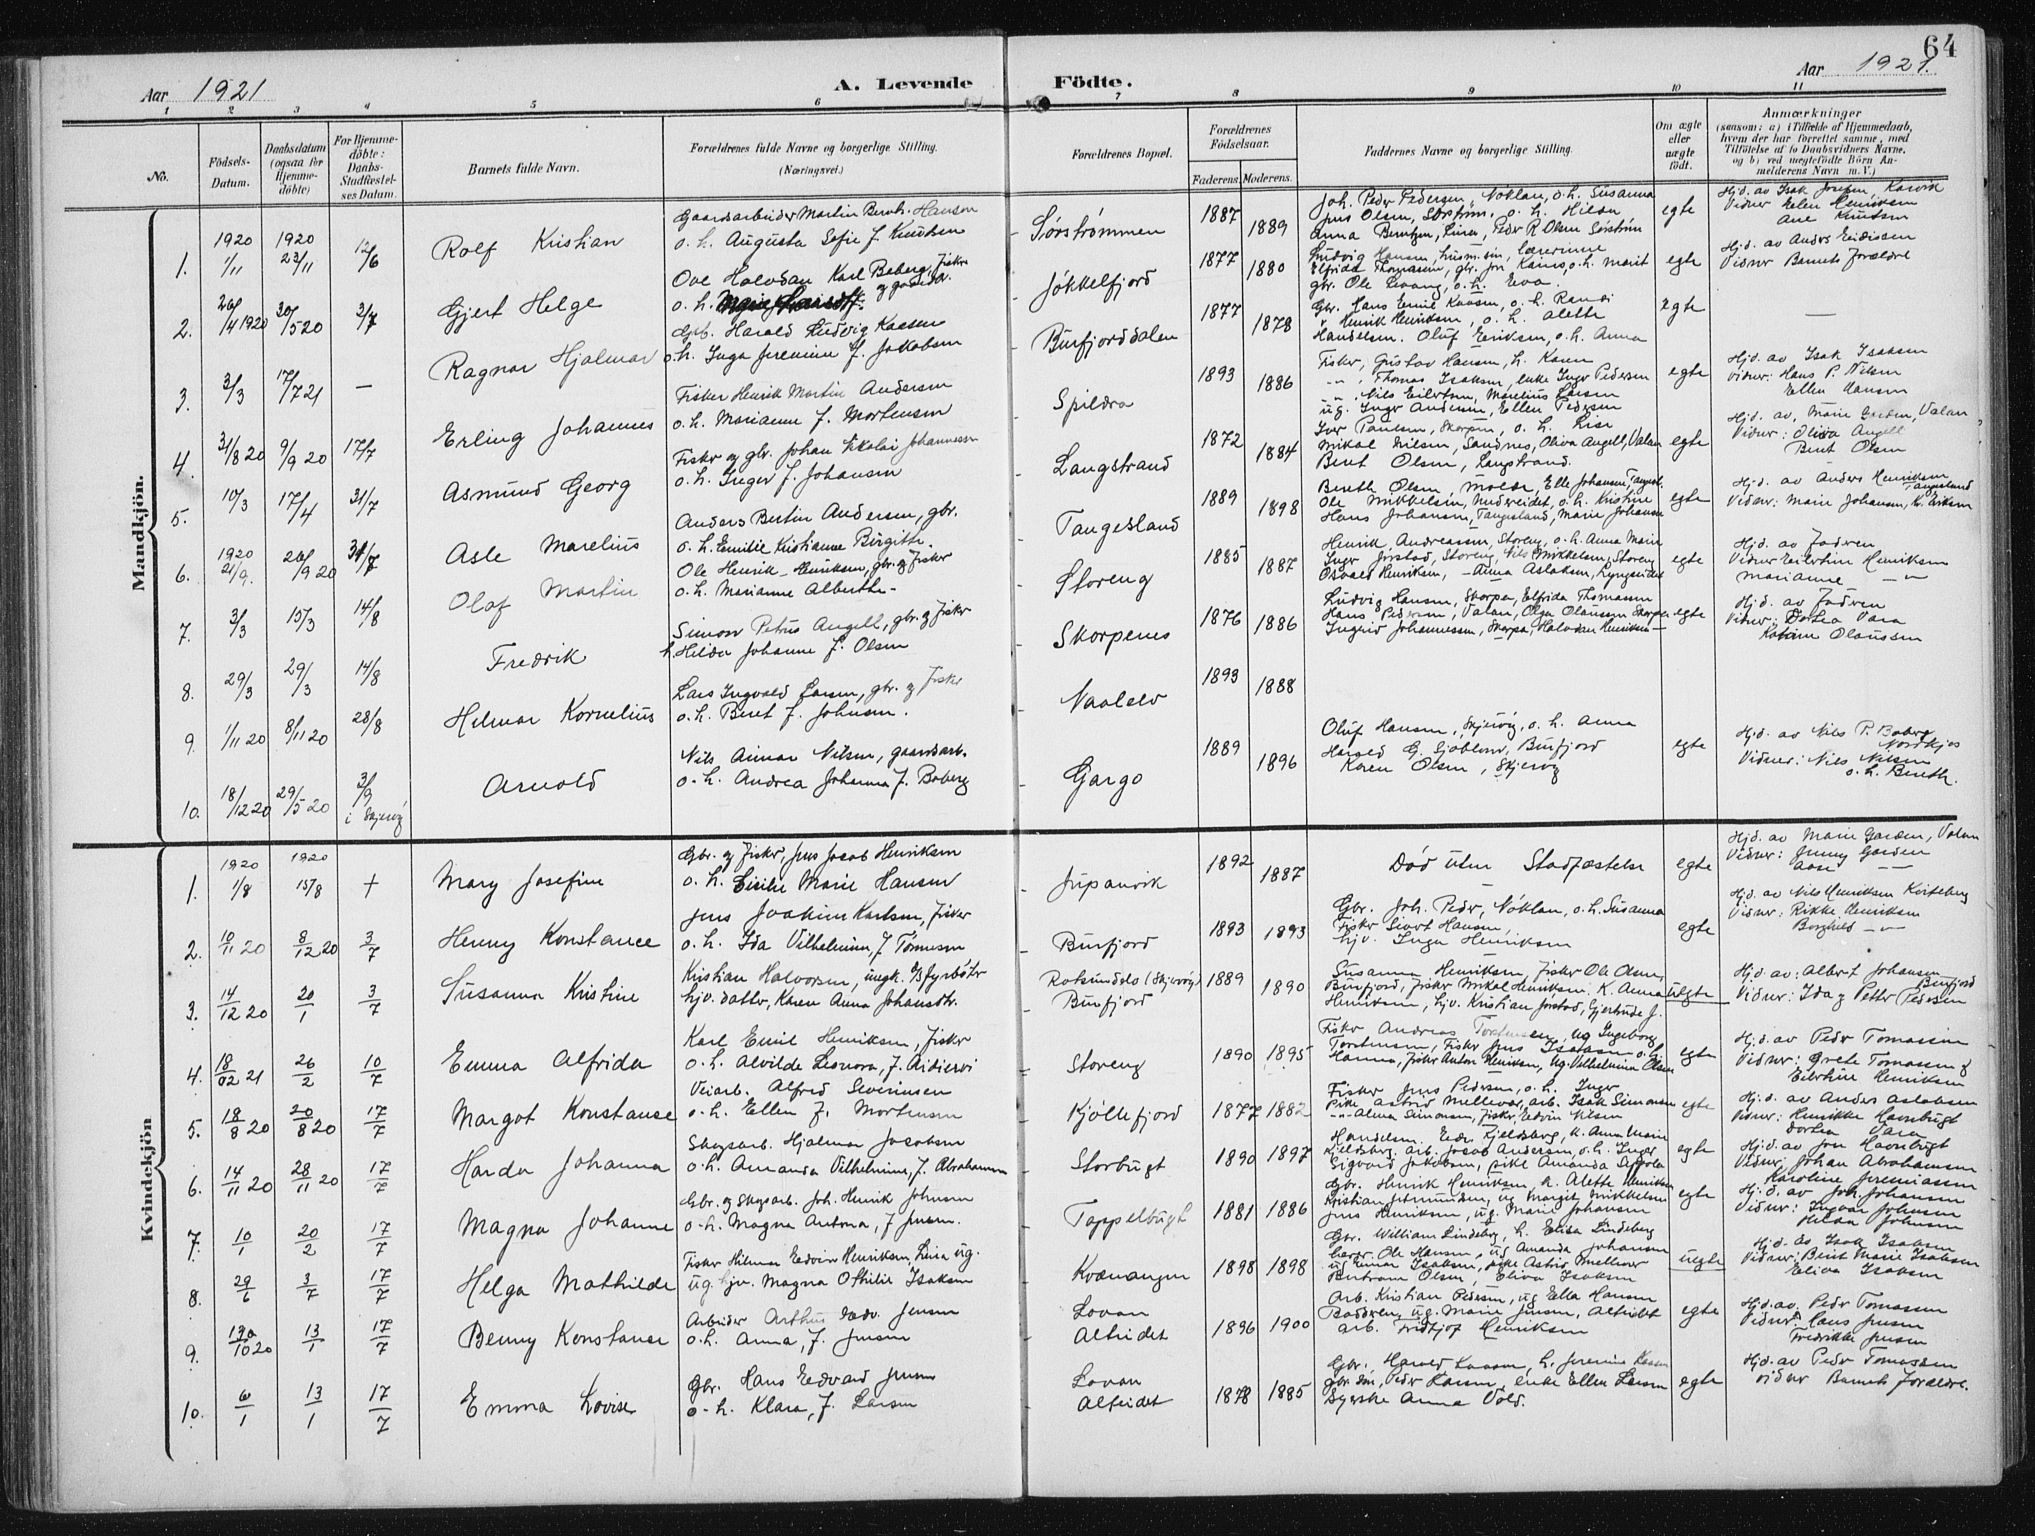 64
Aar 1921
A. Levende Födte.
Aar 1921.
1 2 3 4 5 6 7 8 9 10 11
No.
Födsels-Datum.
Daabsdatum (ogsaa for Hjemme-döbte)
For Hjemme-döbte: Daabs-Stadfæstel-ses Datum.
Barnets fulde Navn.
Forældrenes fulde Navne og borgerlige Stilling.
(Næringsvei.)
Forældrenes Bopæl.
Forældrenes Födselsaar.
Faderens. Moderens.
Faddernes Navne og borgerlige Stilling.
Om ægte eller uægte födt.
Anmærkninger
(saasom: a) i Tilfælde af Hjemmedaab, hvem der har forrettet samme, med Tilföielse af to Daabsvidners Navne, og b) ved uegtefödte Börn An-melderens Navn m. V.)
Mandkjön.
1. 1920 1/11 1920 23/11 12/6 Rolf Kristian
Gaardsarbeider Martin Bernh. Hansen
o. h. Augusta Sofie f. Knudsen
Sørstrømmen 1887 1889
Joh. Peder Pedersen, Nøklan, o.h. Susanna
Jens Olsen, Sørstrøm, o. h. Hilda
Anna Berntzen, Peder R Olsen Sørstrøm
egte
Hjd. av Isak Josefsen, Karvik
Vidner Elen Henriksen
Ane Knutsen
2. 26/4 1920 30/5 20 3/7 Gjert Helge
Ove Halvdan Karl Boberg, fisker
o. h.
Jøkkelfjord 1877 1880
Ludvig Hansen, lærerinne
Elfrida Thomassen, gbr. Jon Kaino, o.h. Marit
gbr. Ole Levang, o.h. Eva.
egte
Hjd. av Anders Eidissen
Vidner Barnets Forældre
3. 3/3 17/7 21 — Ragnar Hjalmar
Gbr. Harald Ludvig Kaasen
o.h. Inga Jeremine f. Jakobsen
Burfjorddalen 1877 1878
Gbr. Hans Emil Kaasen, o.h. Randi
" Henrik Henriksen, o. h. Alette
Handelsm. Oluf Eriksen, o.h. Anna
egte —
4. 31/8 20 9/9 20 17/7 Erling Johannes
Fisker Henrik Martin Andersen
o.h. Marianne f. Mortensen
Spildra 1893 1886
Fisker, Gustav Hansen, h. Karen
-"- , Thomas Isaksen, enke Inger Pedersen
-"- , Nils Eilertsen, Marelius Larsen
ug. Inger Andersen, Ellen Pedersen
egte
Hjd. av Isak Isaksen
Vidner: Hans P. Nilsen
Ellen Hansen
5. 10/3 17/4 31/7 Asmund Georg
Fisker og gbr. Johan Nikolai Johannessen
o.h. Inger f. Johansen
Langstrand 1872 1884
Iver Paulsen, Skorpen, o. h. Lise
Mikal Nilsen, Sandnes, Oliva Angell, Valan
Berit Olsen, Langstrand.
egte
Hjd. av, Marie Garden, Valan
Vidner: Oliva Angell
Berit Olsen
6. 1920 21/9. 26/9 20 31/7 Asle Marelius
Anders Bertin Andersen, gbr.
o.h. Emilie Kristianne Birgitte.
Tangesland 1889 1898
Bereth Olsen Molde, Elle Johansen, Tangesl.
Ole Mikkelsen, Undereidet, o.h. Kristine
Hans Johansen, Tangesland, Marie Johansen
egte
Hjd. av Anders Henriksen Tangesland
Vidner: Marie Johansen, K. Eriksen
7. 3/3 15/3 14/8 Olaf Martin
Ole Henrik Henriksen, gbr. og fisker
o.h. Marianne Alberthe
Storeng 1885 1887
Henrik Andreassen, Storeng, o.h. Anna Marie
Inger Jørstad, Storeng, Nils Mikkelsen, Storeng
Osvald Henriksen, Anna Aslaksen, Lyngseidet
egte
Hjd. av Faderen
Vidner Eilertine Henriksen
Marianne -"-
8. 29/3 29/3 14/8 Fredrik
Simon Petrus Angell, gbr. og fisker
h. Hilda Johanne f. Olsen
Skorpenes 1876 1886
Ludvig Hansen, Skorpen, Elfrida Thomassen
Hans Pedersen, Valan, Olga Olaussen Skorpen
Ingrid Johannessen, Skorpa, Halvdan Henriksen
egte
Hjd. av Faderen
Vidner: Dortea Vara
Katrine Olaussen
9. 1/11 20 8/11 20 28/8 Helmar Kornelius
Lars Ingvald Larsen, gbr. og fisker
o.h. Berit f. Johnsen.
Naalelv 1893 1888
10. 18/12 20 29/5 20 3/9 i Skjervøy Arnold
Nils Ainar Nilsen, gaardsarb.
o.h. Andrea Johanna f. Boberg
Gargo 1889 1896
Oluf Hansen, Skjervøy, o.h. Anna
Harald G. Sjøblom, Burfjord
Karen Olsen, Skjervøy
egte
Hjd. av Nils P. Boberg Nordkjos
Vidner: Nils Nilsen
o. h. Berith.
Kvindekjön
1. 1920 1/8 1920 15/8 + Mary Josefine
Gbr. og fisker, Jens Jacob Henriksen
o. h. Cicilie Marie Hansen
Jupanvik 1892 1887
Død uten Stadfæstelse
egte
Hjd. av Marie Garden, Valan
Vidner: Jenny Garden
Aase -"-
2. 10/11 20 8/12 20 3/7 Henny Konstance
Jens Joakim Karlsen, fisker
o.h. Ida Vilhelmine, f Tømmesen
Burfjord 1893 1893
Gbr. Joh. Peder, Nøklan, o.h. Susanna
Fisker Sivert Hansen,
hjv. Inga Henriksen
egte
Hjd. av Nils Henriksen Kviteberg
Vidner: Rikke Henriksen
Borghild -"-
3. 14/12 20 20/1 3/7 Susanna Kristine
Kristian Halvorsen, ungk. fyrbøter
hjv. datter, Karen Anna Johansdtr.
Rotsunddelv (Skjervøy) 1889 1890
Burfjord
Susanna Henriksen, fisker Ole Olsen,
Burfjord, fisker Mikal Henriksen, K. Anna
Henriksen, hjv. Kristian Jørstad, Gjertrude J.
uegte
Hjd. av: Albert Johansen Burfjord
Vidner: Ida og Petter Pedersen
4. 18/02 21 26/2 10/7 Emma Alfrida
Karl Emil Henriksen, fisker
o.h. Alvilde Leonora, f. Aidiervi
Storeng 1890 1895
Fisker Andreas Torstensen, ug Ingeborg
Torstensen, Fisker Jens Isaksen o. h.
Hanna, fisker Anton Henriksen, ug. Vilhelmine Olsen
egte
Hjd. av Peder Tomassen
Vidner: Grete Tomassen og
Eilertine Henriksen
5. 18/8 20 20/8 20 17/7 Margot Konstanse
Veiarb. Alfred Severinsen
o.h. Ellen f. Mortensen
Kjøllefjord 1877 1882
Fisker Jens Pedersen, o.h. Inger
Pike Astrid Mellevær, arb. Isak Simonsen
-"- Alma Simonsen, fisker Edvin Nilsen
egte
Hjd. av Anders Aslaksen
Vidner: Henrikke Havnbugt
Dortea Vara
6. 14/11 20 28/11 20 17/7 Harda Johanna
Skogsarb. Hjalmar Jacobsen
o.h. Amanda Vilhelmine, f. Abrahamsen
Storbugt 1890 1897
Handelsm. Peder Kjeldsberg, K. Anna Marie
Kjeldsberg, arb. Josef Andersen, o.h. Inger
Sigvard Jakobsen, pike Amanda Seppola
egte
Hjd. av Jon Havnbugt
Vidner: Johan Abrahamsen
Karoline Jeremiassen
7. 10/1 20/2 17/7 Magna Johanne
Gbr. og skogsarb. Joh. Henrik Johnsen
o.h. Magna Antona, f Jensen.
Toppelbugt 1881 1886
Gbr. Henrik Henriksen, K. Alette Henriksen
Kristian Jetmundsen, ug Margit Mikkelsen
Jens Henriksen, ug. Marie Johansen
egte
Hj. d. av Joh. Johansen
Vidner: Ingvar Johnsen
Hilda Johnsen
8. 29/6 3/7 17/7 Helga Mathilde
Fisker Hilmar Edvin Henriksen, ug.
ug. hjv. Magna Othilie Isaksen
Kvænangen 1898 1898
Gbr. William Lindeberg, h. Elisa Lindeberg
Lærer Ole Hansen, ug Amanda Johansen
ug Einar Isaksen, pike Astrid Mellevær
Bertram Olsen, Eliva Isaksen
uegte
Hjd. av Isak Isaksen
Vidner: Berit Marie Isaksen
Eliva Isaksen
9. 13/10 20 13/1 17/7 Benny Konstanse
Arbeider Arthur Edv. Jensen
o.h. Anna, f. Jensen
Lovan
Alteidet 1896 1900
Arb. Kristian Pedersen, ug Ella Hansen
Badderen, ug. Marie Jensen, Alteidet
arb. Fridtjof Henriksen
egte
Hjd. av. Peder Tomassen
Vidner: Hans Jensen
Fredrikke Jensen
10. 6/1 13/1 17/7 Emma Lovise
Gbr. Hans Eedvard Jensen
o.h. Klara, f. Larsen
Lovan
Alteidet 1878 1885
Gbr. Harald Kaasen, h. Jeremine Kaasen
Gbr. søn, Peder Larsen, enke Ellen Larsen
Syerske Anna Vold.
egte
Hjd. av Peder Tomassen
Vidner Barnets forældre.